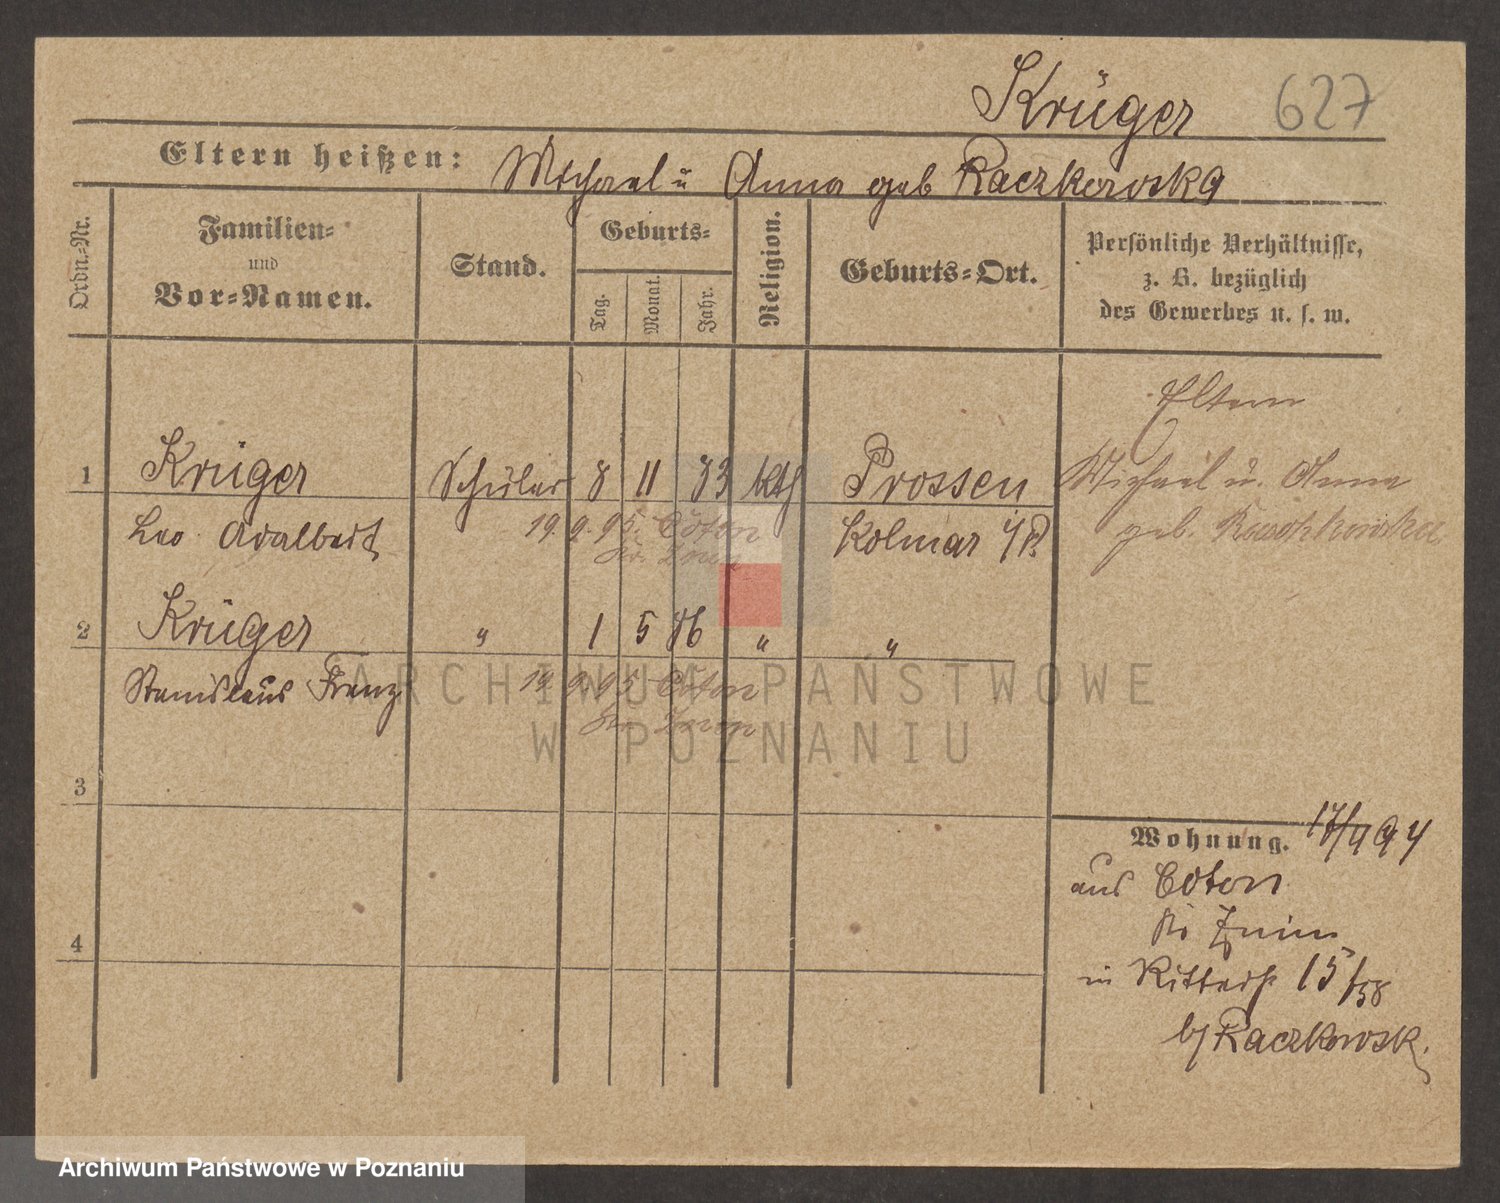 Krüger 627
Eltern heißen: Michael u Anna geb Raczkowska
Ordn.-Nr.
Familien-
und
Vor-Namen.
Stand.
Geburts-
Tag.
Monat.
Jahr.
Religion.
Geburts-Ort.
Persönliche Verhältnisse,
z. B. bezüglich
des Gewerbes u. s. w.
Eltern
Michael u. Anna
geb.
1 Krüger Schüler 8 11 83 kth Prossen
Leo Adalbert 19. 9. 95. Coton Kolmar i/P.
Kr. Znin
2 Krüger " 1 5 86 " "
Stanislaus Franz 19. 9. 95 Coton
Kr. Znin
3
4
Wohnung. 17/9 94
aus Coton
Kr Znin
in Ritterst 15/58
b/ Raczkowsk.
ARCHIWUM PAŃSTWOWE
W POZNANIU
Archiwum Państwowe w Poznaniu